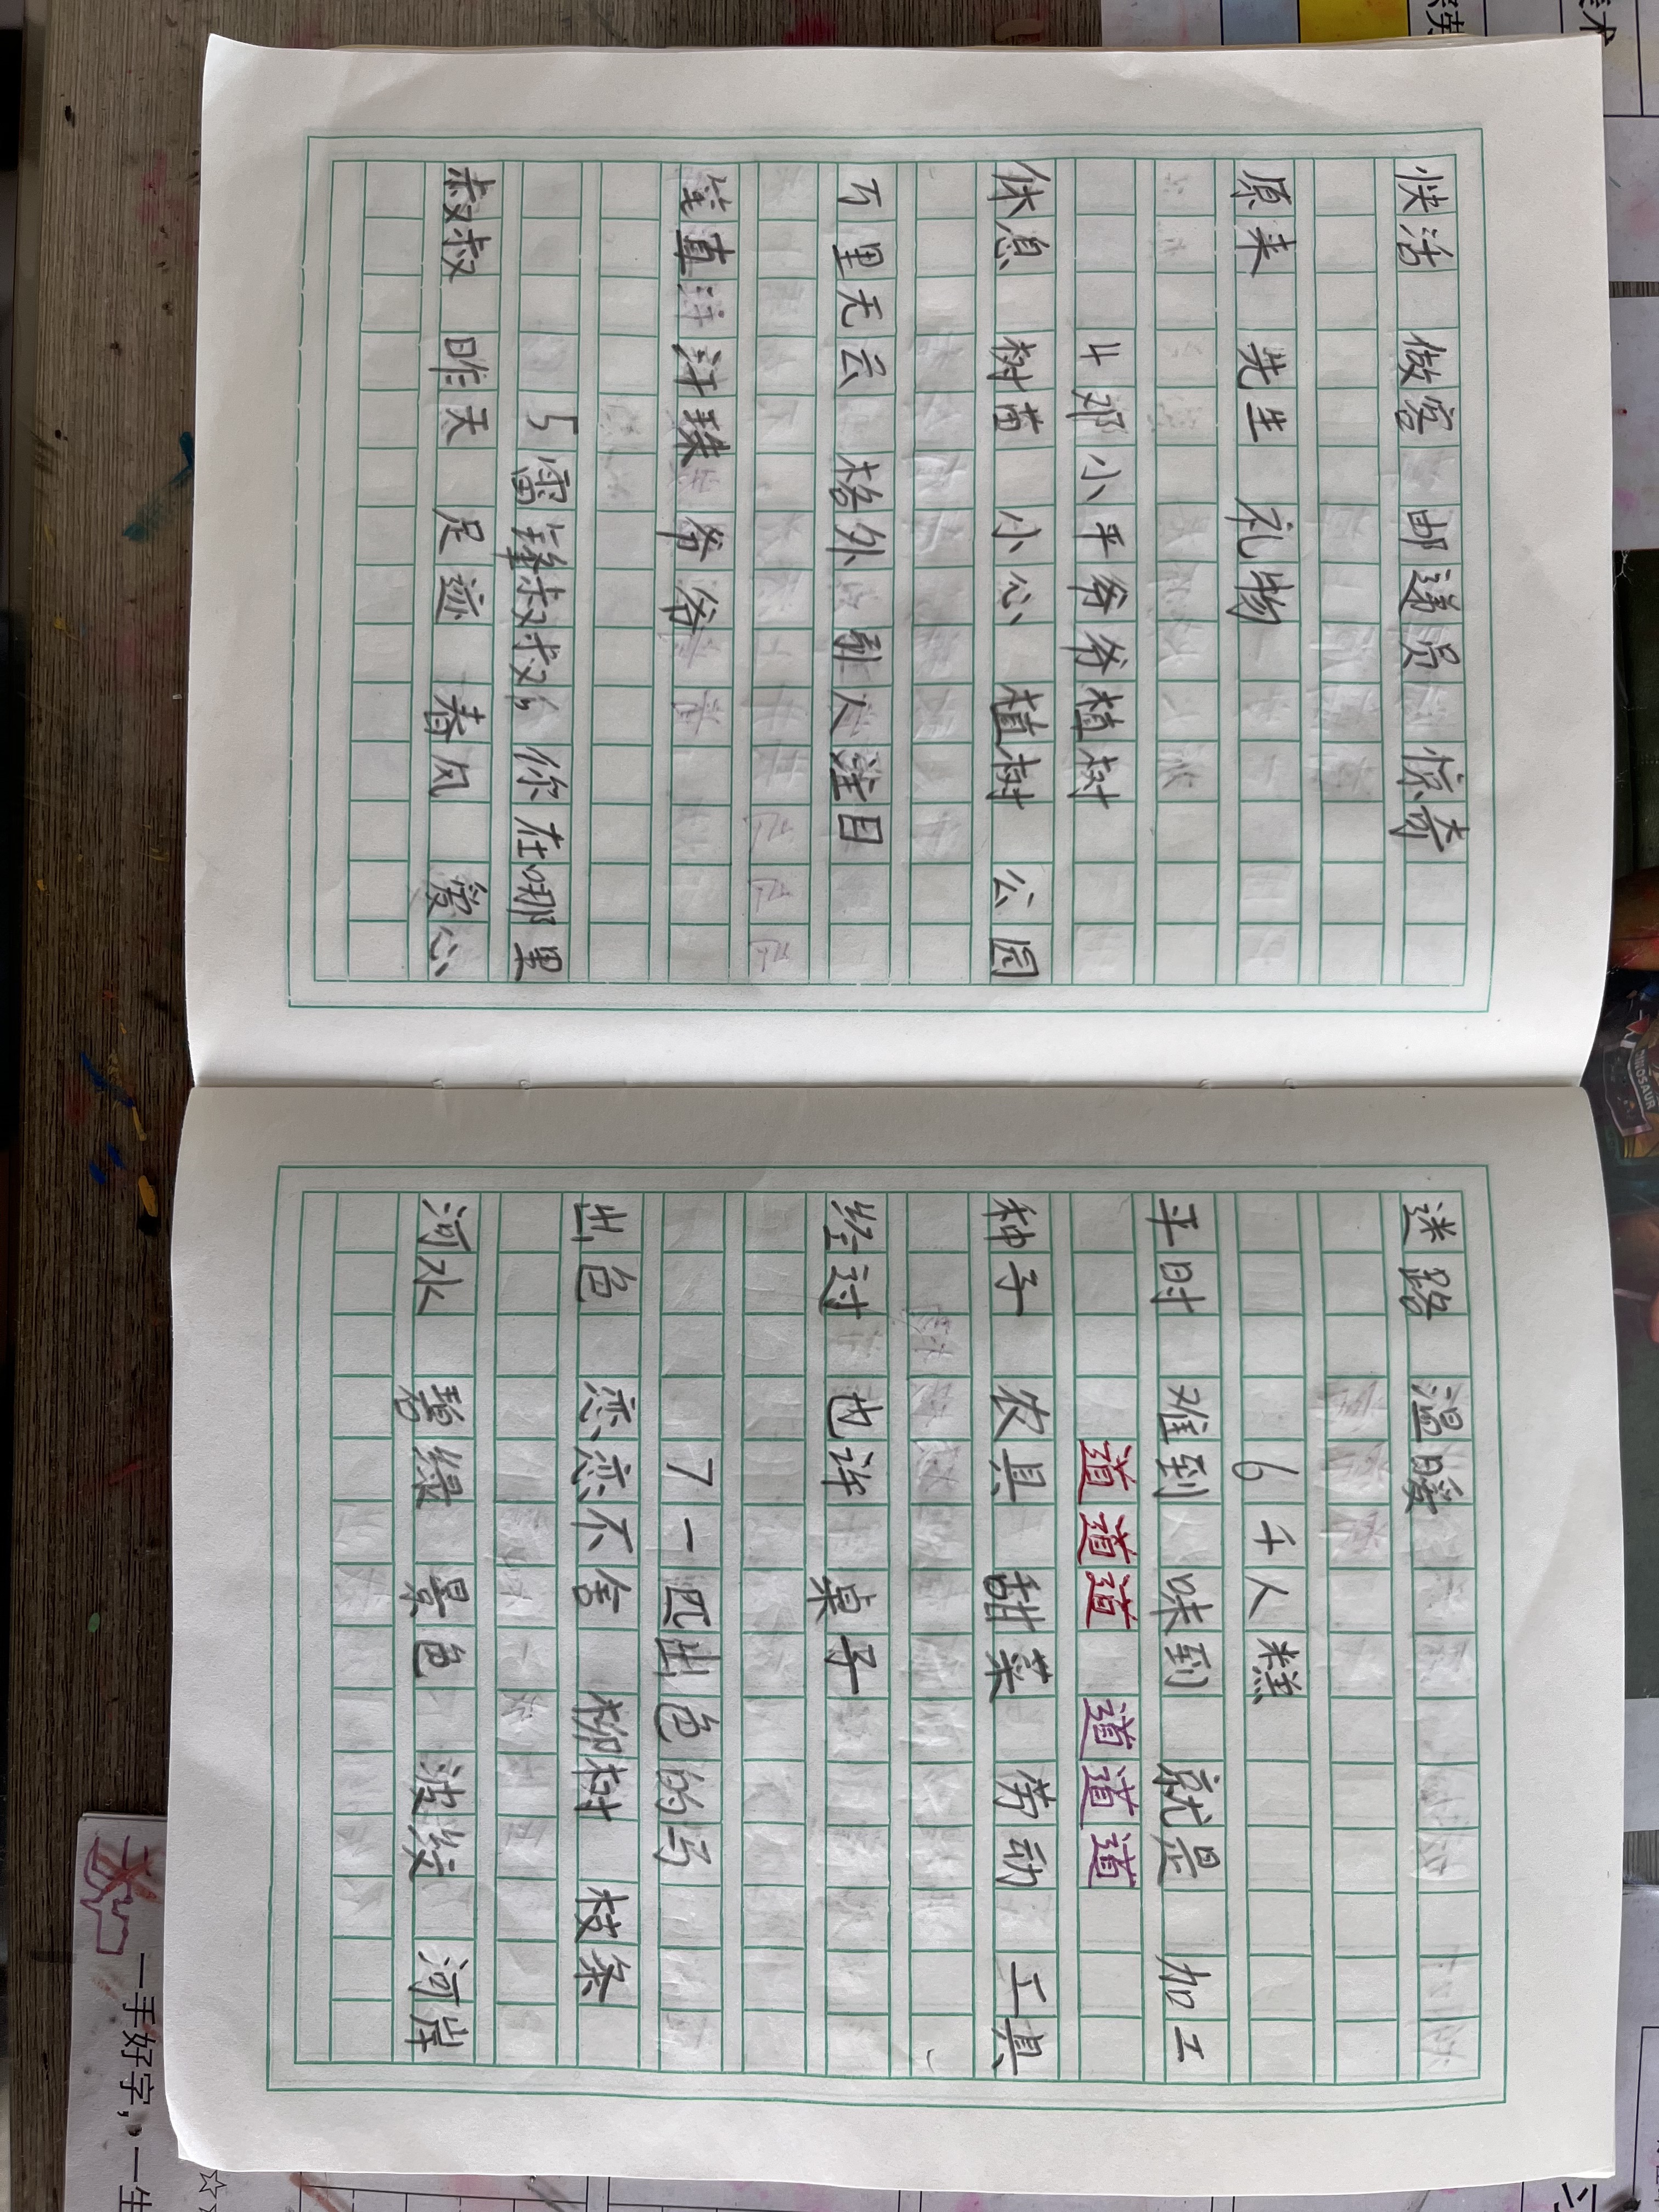 快活 做客 邮递员 惊奇
原来 先生 礼物
4邓小平爷爷植树
休息 树苗 小心 植树 公园
万里无云 格外 引人注目
笔直 汗珠 爷爷
5雷锋叔叔,你在哪里
叔叔 昨天 足迹 春风 爱心
迷路 温暖
6千人糕
平时 难到 味到 就是 加工
道道道 道道道
种子 农具 甜菜 劳动 工具
经过 也许 桌子
7一匹出色的马
出色 恋恋不舍 柳树 枝条
河水 碧绿 景色 波纹 河岸
一手好字,一生
DINOSAUR